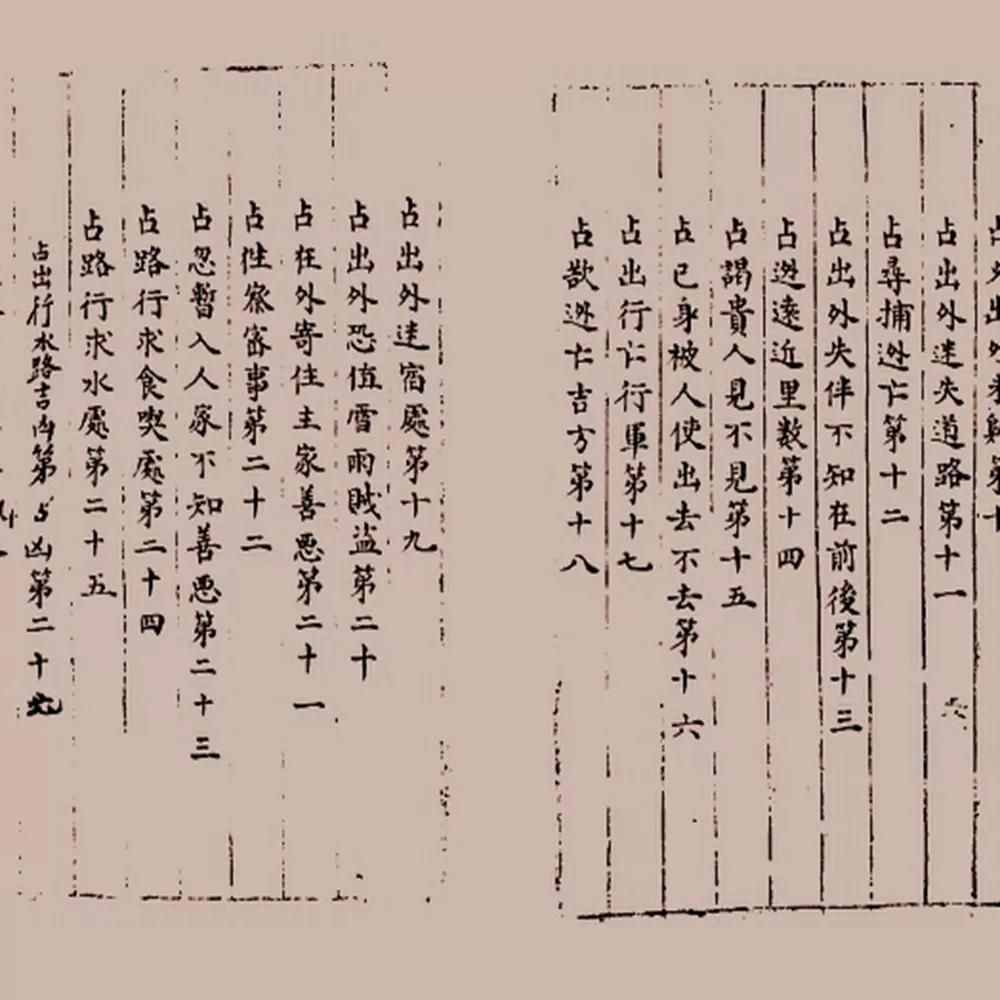 占出外迷失道路第十一
占尋捕迯亡第十二
占出外失伴不知在前後第十三
占迯遠近里数第十四
占謁貴人見不見第十五
占已身被人使出去不去第十六
占出行亡行軍第十七
占欲迯亡吉方第十八
占出外迷宿處第十九
占出外恐值雪雨賊盗第二十
占在外寄住主家善悪第二十一
占徃察審事第二十二
占忽暫入人家不知善悪第二十三
占路行求食喫處第二十四
占路行求水處第二十五
占出行水路吉凶第 凶第二十六